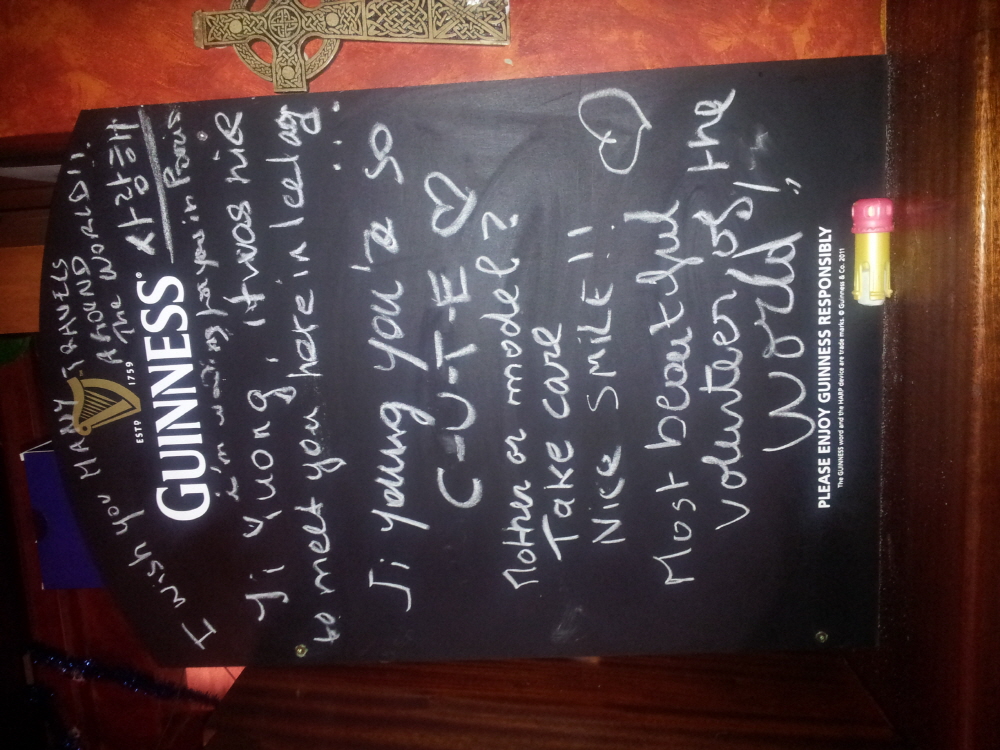 I WISH YOU MANY TRAVELS
AROUND
The WORLD!!
ESTD 1759
GUINNESS
사랑해
i'm waiting for you in Paris
Ji Yuong, it was nice
to meet you here in
Ji young you're so
C-U-T-E ♡
Mother or model?
Take care
NicE SMILE!! ♡
Most beautiful
volunteer of the
World!!
PLEASE ENJOY GUINNESS RESPONSIBLY
The GUINNESS word and the HARP device are trade marks. © Guinness & Co. 2011